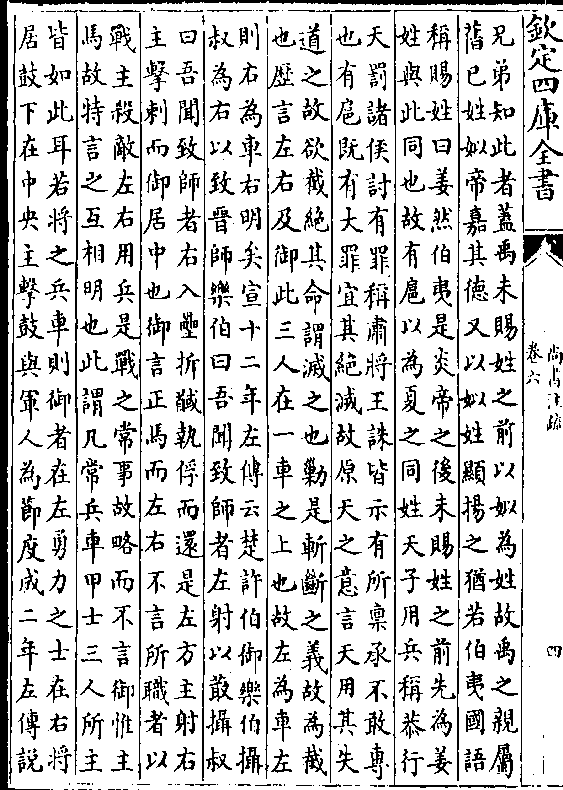 欽定四庫全書
尚書注疏
卷六
四
兄弟知此者蓋禹未賜姓之前以姒為姓故禹之親屬
舊已姓姒帝嘉其德又以姒姓顯揚之猶若伯夷國語
稱賜姓曰姜然伯夷是炎帝之後未賜姓之前先為姜
姓與此同也故有扈以為夏之同姓天子用兵稱恭行
天罰諸侯討有罪稱肅將王誅皆示有所稟承不敢專
也有扈既有大罪宜其絕滅故原天之意言天用其失
道之故欲截絕其命謂滅之也勦是斬斷之義故為截
也歴言左右及御此三人在一車之上也故左為車左
則右為車右明矣宣十二年左傳云楚許伯御樂伯攝
叔為右以致晉師樂伯曰吾聞致師者左射以菆攝叔
曰吾聞致師者右入壘折馘執俘而還是左方主射右
主擊刺而御居中也御言正馬而左右不言所職者以
戰主殺敵左右用兵是戰之常事故略而不言御惟主
馬故特言之互相明也此謂凡常兵車甲士三人所主
皆如此耳若將之兵車則御者在左勇力之士在右將
居鼓下在中央主擊鼓與軍人為節度成二年左傳說